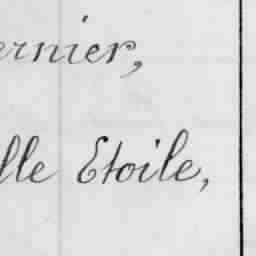 ernier,
lle Etoile,